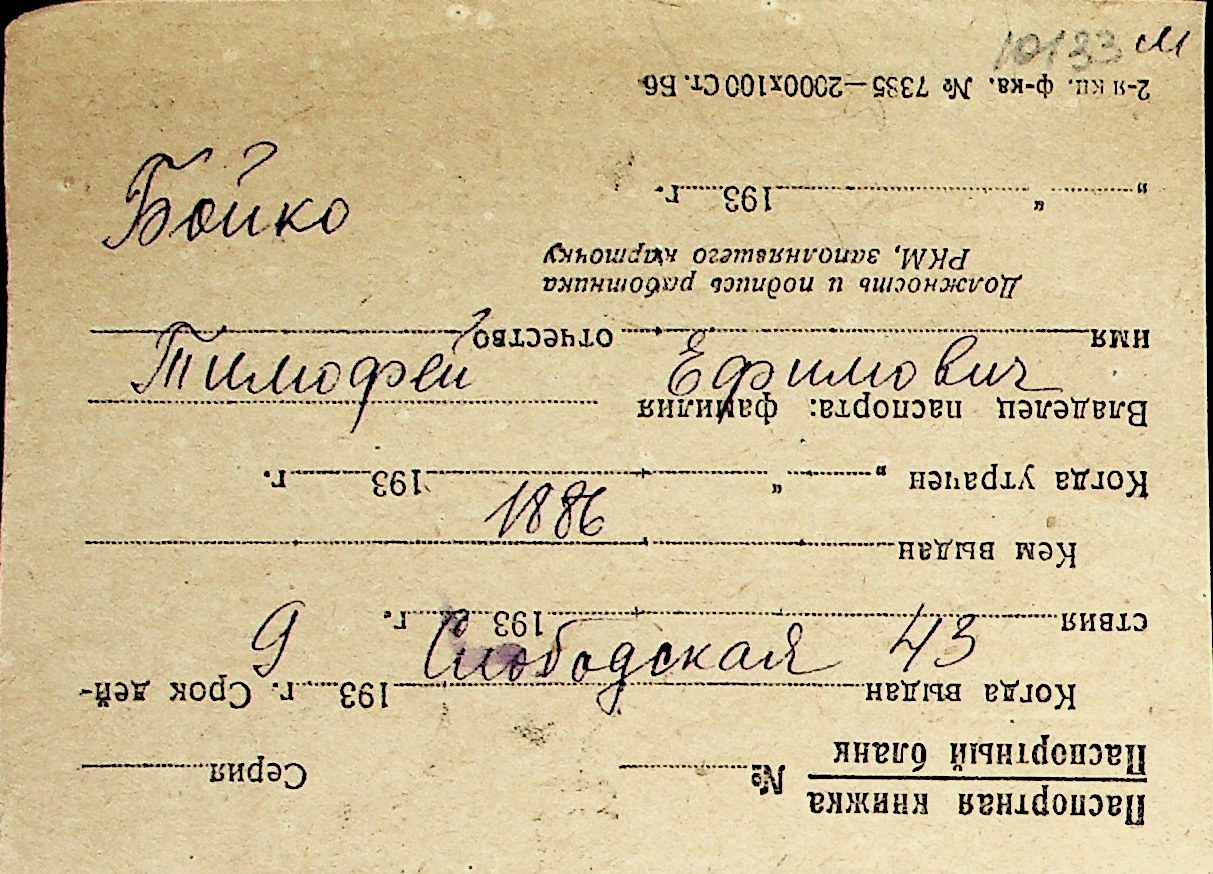 10133 м
Бойко
Тимофей Ефимович
1886
9 Слободская 43
Паспортная книжка
Паспортный бланк № Серия
Когда выдан 193 г. Срок дей-
ствия 193 г.
Кем выдан
Когда утрачен „ “ 193 г.
Владелец паспорта: фамилия
имя отчество
Должность и подпись работника
РКМ, заполнявшего карточку
„ “ 193 г.
2-я кп. ф-ка. № 7385—2000х100 Ст. Б6